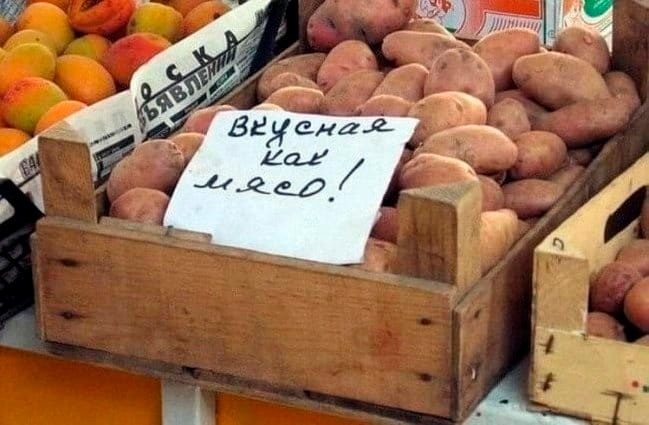 ДОСКА
ОБЪЯВЛЕНИЙ
Вкусная
как
мясо!